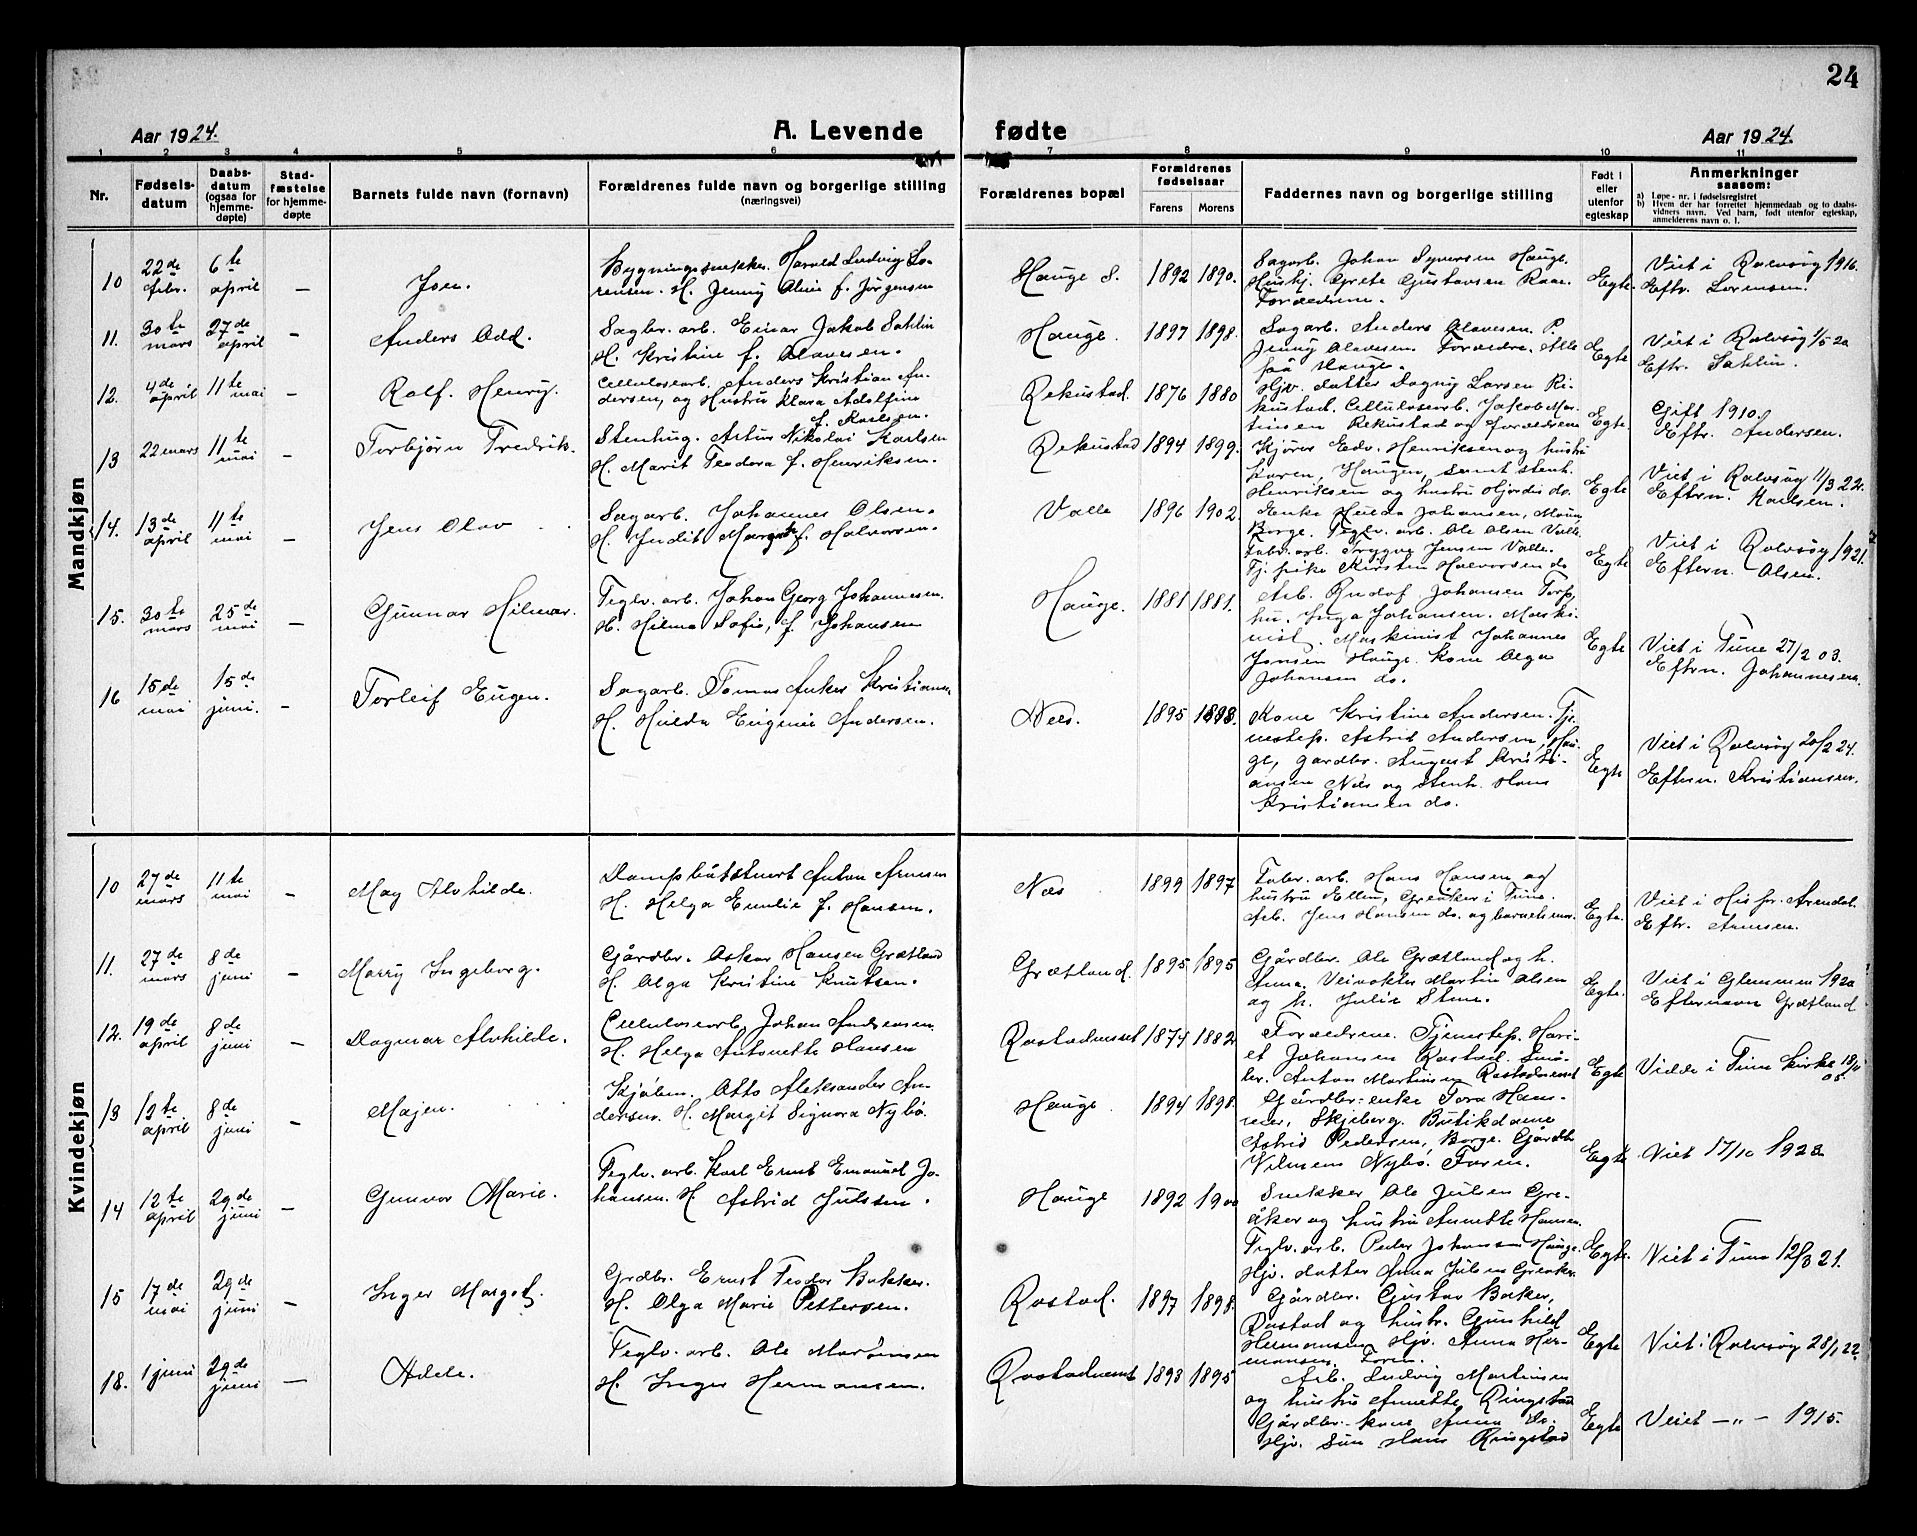 24
Aar 1924.
A. Levende fødte
Aar 1924.
1 2 3 4 5 6 7 8 9 10 11
Nr.
Fødsels-
datum
Daabs-
datum
(ogsaa for
hjemme-
døpte)
Stad-
fæstelse
for hjemme-
døpte
Barnets fulde navn (fornavn)
Forældrenes fulde navn og borgerlige stilling
(næringsvei)
Forældrenes bopæl
Forældrenes
fødselsaar
Farens
Morens
Faddernes navn og borgerlige stilling
Født i
eller
utenfor
egteskap
Anmerkninger
saasom:
a) Løpe-nr. i fødselsregistret
b) Hvem der har forrettet hjemmedaab og to daabs-
vidners navn. Ved barn, født utenfor egteskap,
anmelderens navn o. l.
Mandkjøn
10
22de
febr.
6te
april
–
Bygningssnekker. Harald Ludvig Lo-
rensen. H. Jenny Olnie f. Jørgensen
Hauge S.
1892
1890.
Sagarb. Johan Syversen Hauge.
Huskj. Grete Gustavsen Raae.
Forældrene.
Egte.
Viet i Rolvsøy 1916.
Eftr. Lorensen.
11.
30te
mars
27de
april
–
Anders Odd.
Sagbr. arb. Einar Jakob Sahlin
H. Kristine f. Olavesen.
Hauge.
1897
1898.
Sagarb. Anders Olavesen. P.
Jenny Olavesen. Forældre. Alle
paa Hauge.
Egte
Viet i Rolvsøy 1/5 20
Eftr. Sahlin.
12.
4de
april
11te
mai
–
Rolf. Henry.
Cellulosearb. Anders Kristian An-
dersen, og Hustru Klara Adolfine
f. Karlsen.
Rekustad.
1876
1880
Hjv. datter Dagny Larsen Ri-
kustad. Cellulosearb. Jakob Mar-
tinsen Rekustad og forældrene
Egte.
Gift 1910.
Eftr. Andersen.
13
22 mars
11te
mai
–
Torbjørn Fredrik.
Stenhug. Artur Nikolai Karlsen
H. Marit Teodora f. Henriksen.
Rekustad
1894
1899.
Kjører Edv. Henriksen og hustru
Karen, Haugen, samt stenh.
Henriksen og hustru Hjørdis do.
Egte
Viet i Rolvsøy 11/3 22.
Eftrn. Karlsen.
14.
13de
april
11te
mai
–
Jens Olav
Sagarb. Johannes Olsen.
H. Judit Margot f. Halvorsen.
Valle
1896
1902.
Enke Hulda Johansen, Moum,
Borge. Teglv. arb. Ole Olsen Valle.
Fabr. arb. Trygve Jensen Valle.
Tj. pike Kirstin Halvorsen do
Egte
Viet i Rolvsøy 1921.
Eftern. Olsen.
15.
30te
mars
25de
mai
–
Gunnar Hilmar.
Teglv. arb. Johan Georg Johannesen.
H. Hilma Sofie, f. Johansen
Hauge.
1881
1881.
Arb. Rudof Johansen Torp,
hu. Inga Johansen. Maski-
nist. Maskinist Johannes
Jensen Hauge. Kone Olga
Johansen do.
Egte
Viet i Tune 27/2 03.
Eftrn. Johannesen.
16
15de
mai
15de
juni.
–
Torleif Eugen.
Sagarb. Tomas Anker Kristiansen
H. Hulda Eugenie Andersen.
Nes.
1895
1898.
Kone Kristine Andersen. Tje-
nestep. Astrid Andersen, Hau-
ge, gardbr. August Kristi-
ansen Næs og stenh. Hans
Kristiansen do.
Egte
Viet i Rolvsøy 20/2 24.
Eftern. Kristiansen.
Kvindekjøn
10
27de
mars
11te
mai
–
May Alvhilde.
Dampbåtstuert Anton Arnesen
H. Helga Emilie f. Hansen.
Næs
1899
1897
Fabr. arb. Hans Hansen og
hustru Ellen, Greåker i Tune.
Arb. Jens Hansen do. og barnets mor.
Egte.
Viet i His pr. Arendal.
Eftr. Arnesen.
11.
27de
mars
8de
juni
–
Marry Ingeborg.
Gårdbr. Oskar Hansen Grætland
H. Olga Kristine Knutsen.
Grætland.
1895
1895
Gårdbr. Ole Grætland og h.
Anna. Veivokter Martin Olsen
og h. Julie Stene.
Egte.
Viet i Glemmen 1920
Efternavn Grætland
12.
19de
april
8de
juni
–
Dagmar Alvhilde.
Cellulosearb. Johan Andreasen
H. Helga Antonette Hansen
Rostadneset
1874
1882
Forældrene. Tjenestep. Hari-
et Johansen Rostad. Små-
br. Anton Martinsen Rostadneset
Egte
Viede i Tune Kirke 18/11
05.
13
12te
april
8de
juni
–
Majen.
Skjøbm. Otto Aleksander An-
dersen. H. Margit Signora Nybø.
Hauge
1894
1898.
Gårdbr. enke Tora Ham-
mer, Skjeberg. Butikdame
Astrid Pedersen, Borge. Gårdbr
Vilmsens Nybø. Faren.
Egte
Viet 17/10 1923.
14
12te
april
29de
juni
–
Gunvor Marie.
Teglv. arb. Karl Ernst Emanuel Jo-
hansen. H. Astrid Julsen.
Hauge
1892
1900
Snekker Ole Julsen Gre-
åker og hustru Annette Hansen.
Teglv. arb. Peder Johansen Hauge.
Hjv. datter Anna Julsen Greåker.
Egte.
Viet i Tune 12/3 21.
15
17de
mai
29de
juni
–
Inger Margot.
Grdbr. Ernst Teodor Bakker.
H. Olga Marie Pettersen.
Rostad.
1897
1898.
Gårdbr. Gustav Bakker,
Rostad og hustr. Gunhild
Hermansen. Hjv. Anna Her-
mansen. Faren.
Egte
Viet i Rolvsøy 28/1 22.
18.
1 juni
29de
juni
–
Adele.
Teglv. arb. Ole Martinsen
H. Inger Hermansen.
Rostadneset
1893
1895
Arb. Ludvig Martinsen
og hustru Annette Ringstad
Gårdbr. kone Anna do.
Hjv. søn Hans Ringstad
Egte
Veiet – „ – 1915.